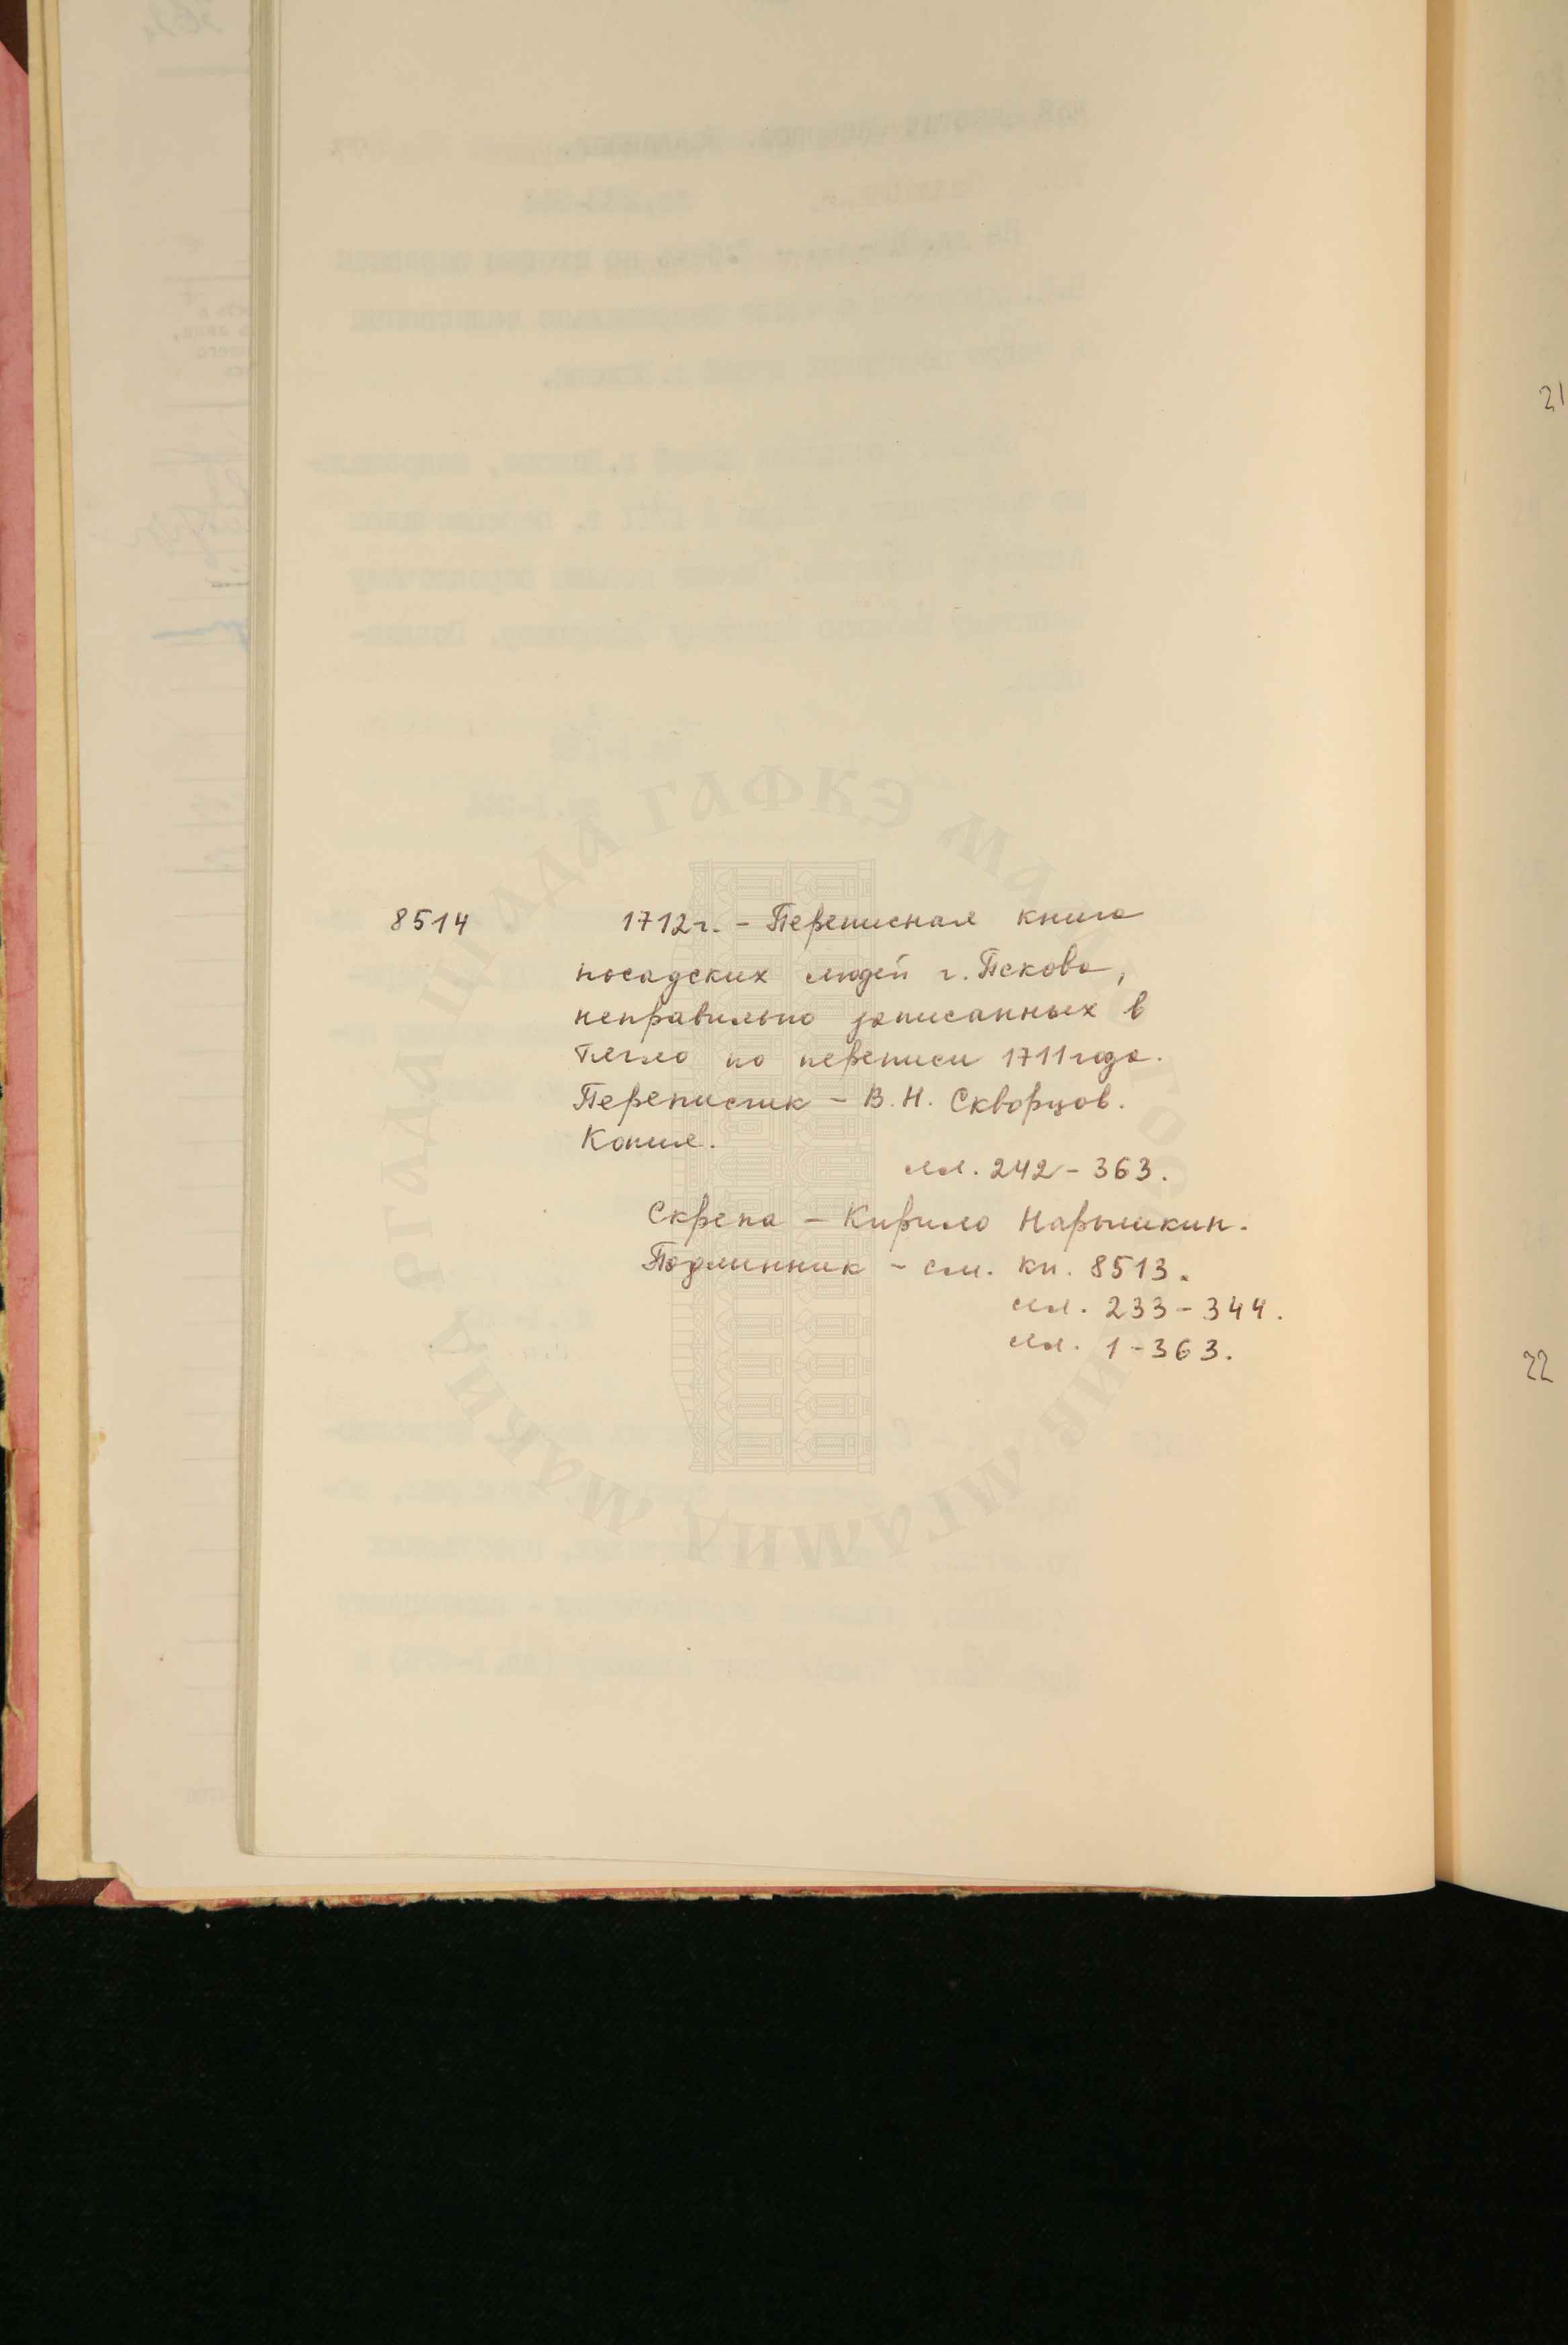 8514 1712г. - Переписная книга
посадских людей г. Пскова,
неправильно записанных в
тягло по переписи 1711 года.
Переписчик - В.Н. Скворцов.
Копия.
лл. 242 - 363.
Скрепа - Кирило Нарышкин.
Подлинник - см. кн. 8513.
лл. 233 - 344.
лл. 1 - 363.
21
22
РГАДА ЦГАДА ГАФКЭ